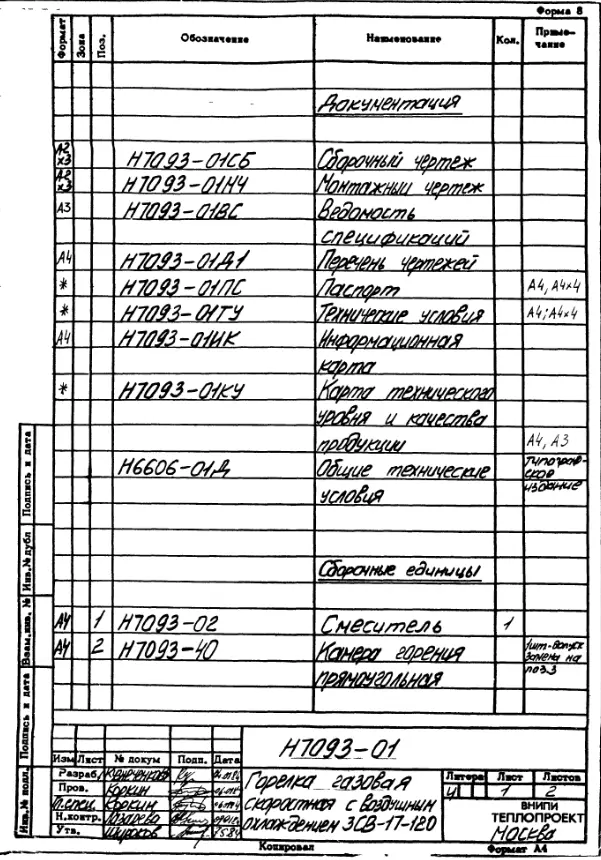 Форма 8
Формат Зона Поз. Обозначение Наименование Кол. Приме-
чание
Документация
А2
х3 Н7093-01СБ Сборочный чертеж
А2
х3 Н7093-01МЧ Монтажный чертеж
А3 Н7093-01ВС Ведомость
спецификаций
А4 Н7093-01Д1 Перечень чертежей
* Н7093-01ПС Паспорт А4, А4х4
* Н7093-01ТУ Технические условия А4; А4х4
А4 Н7093-01ИК Информационная
карта
* Н7093-01КУ Карта технического
уровня и качества
продукции А4, А3
Н6606-01Д Общие технические Типограф-
условия ское
издание
Сборочные единицы
А4 1 Н7093-02 Смеситель 1
А4 2 Н7093-40 Камера горения 1шт-допуск
прямоугольная замена на
поз.3
Подпись и дата
Инв.№ дубл
Взам.инв. №
Подпись и дата
Инв.№ подл.
Н7093-01
Изм Лист № докум Подп. Дата
Разраб.
Пров. Коркин
Гл.спец. Коркин
Н.контр. Лазарева
Утв.
Горелка газовая
скоростная с воздушным
охлаждением ЗСВ-17-120
Литера Лист Листов
И 1 2
ВНИПИ
ТЕПЛОПРОЕКТ
Москва
Копировал Формат А4